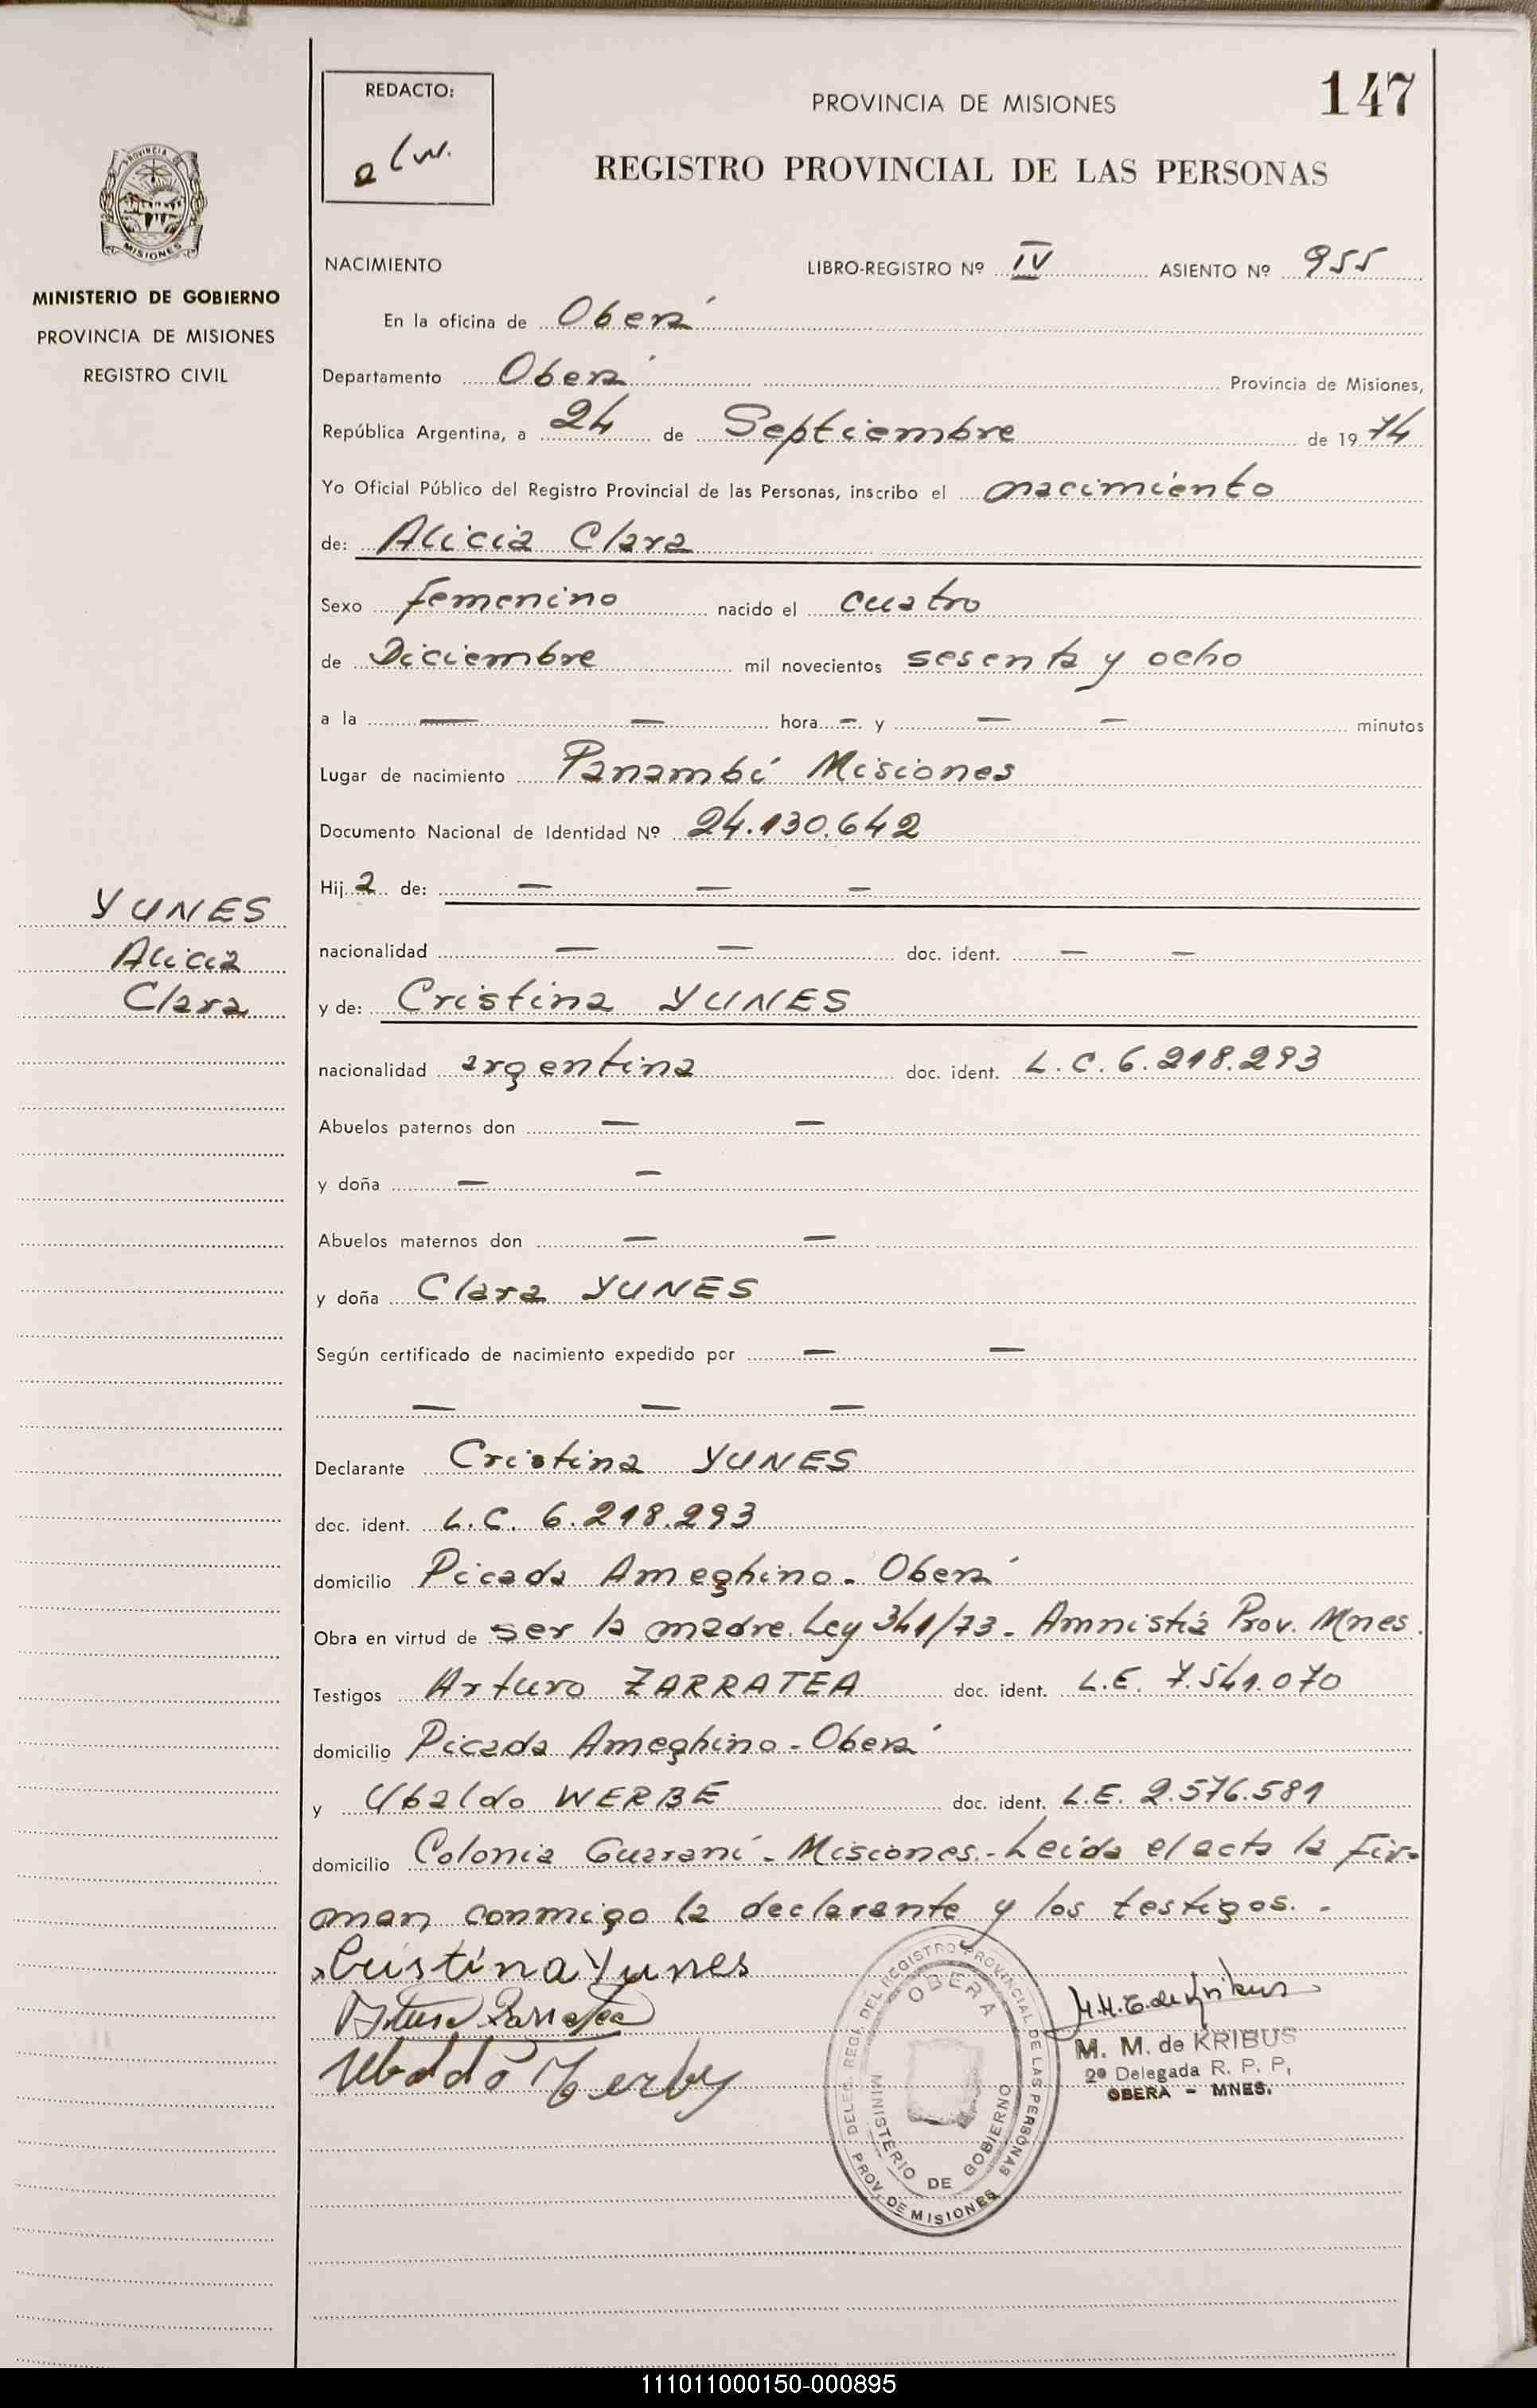 REDACTO:
PROVINCIA DE MISIONES
147
REGISTRO PROVINCIAL DE LAS PERSONAS
PROVINCIA DE
MISIONES
MINISTERIO DE GOBIERNO
PROVINCIA DE MISIONES
REGISTRO CIVIL
NACIMIENTO LIBRO-REGISTRO Nº IV ASIENTO Nº 955
En la oficina de Oberá
Departamento Oberá Provincia de Misiones,
República Argentina, a 24 de Septiembre de 1974
Yo Oficial Público del Registro Provincial de las Personas, inscribo el nacimiento
de: Alicia Clara
Sexo femenino nacido el cuatro
de Diciembre mil novecientos sesenta y ocho
a la — — hora - y — — minutos
Lugar de nacimiento Panambí Misiones
Documento Nacional de Identidad Nº 24.130.642
Hija de: — — —
nacionalidad — — doc. ident. — —
YUNES
Alicia
Clara
y de: Cristina YUNES
nacionalidad argentina doc. ident. L.C. 6.218.293
Abuelos paternos don — —
y doña — —
Abuelos maternos don — —
y doña Clara YUNES
Según certificado de nacimiento expedido por — —
— — —
Declarante Cristina YUNES
doc. ident. L.C. 6.218.293
domicilio Picada Ameghino - Oberá
Obra en virtud de ser la madre. Ley 341/73 - Amnistía Prov. Mnes.
Testigos Arturo ZARRATEA doc. ident. L.E. 7.541.070
domicilio Picada Ameghino - Oberá
y Ubaldo WERBE doc. ident. L.E. 2.576.581
domicilio Colonia Guaraní - Misiones.- Leída el acta la fir-
man conmigo la declarante y los testigos. -
Cristina Yunes
Arturo Zarratea
M. M. de KRIBUS
2ª Delegada R. P. P,
OBERA - MNES.
DELEG. REGL. DEL REGISTRO PROVINCIAL DE LAS PERSONAS
OBERA
MINISTERIO DE GOBIERNO
PROV. DE MISIONES
111011000150-000895